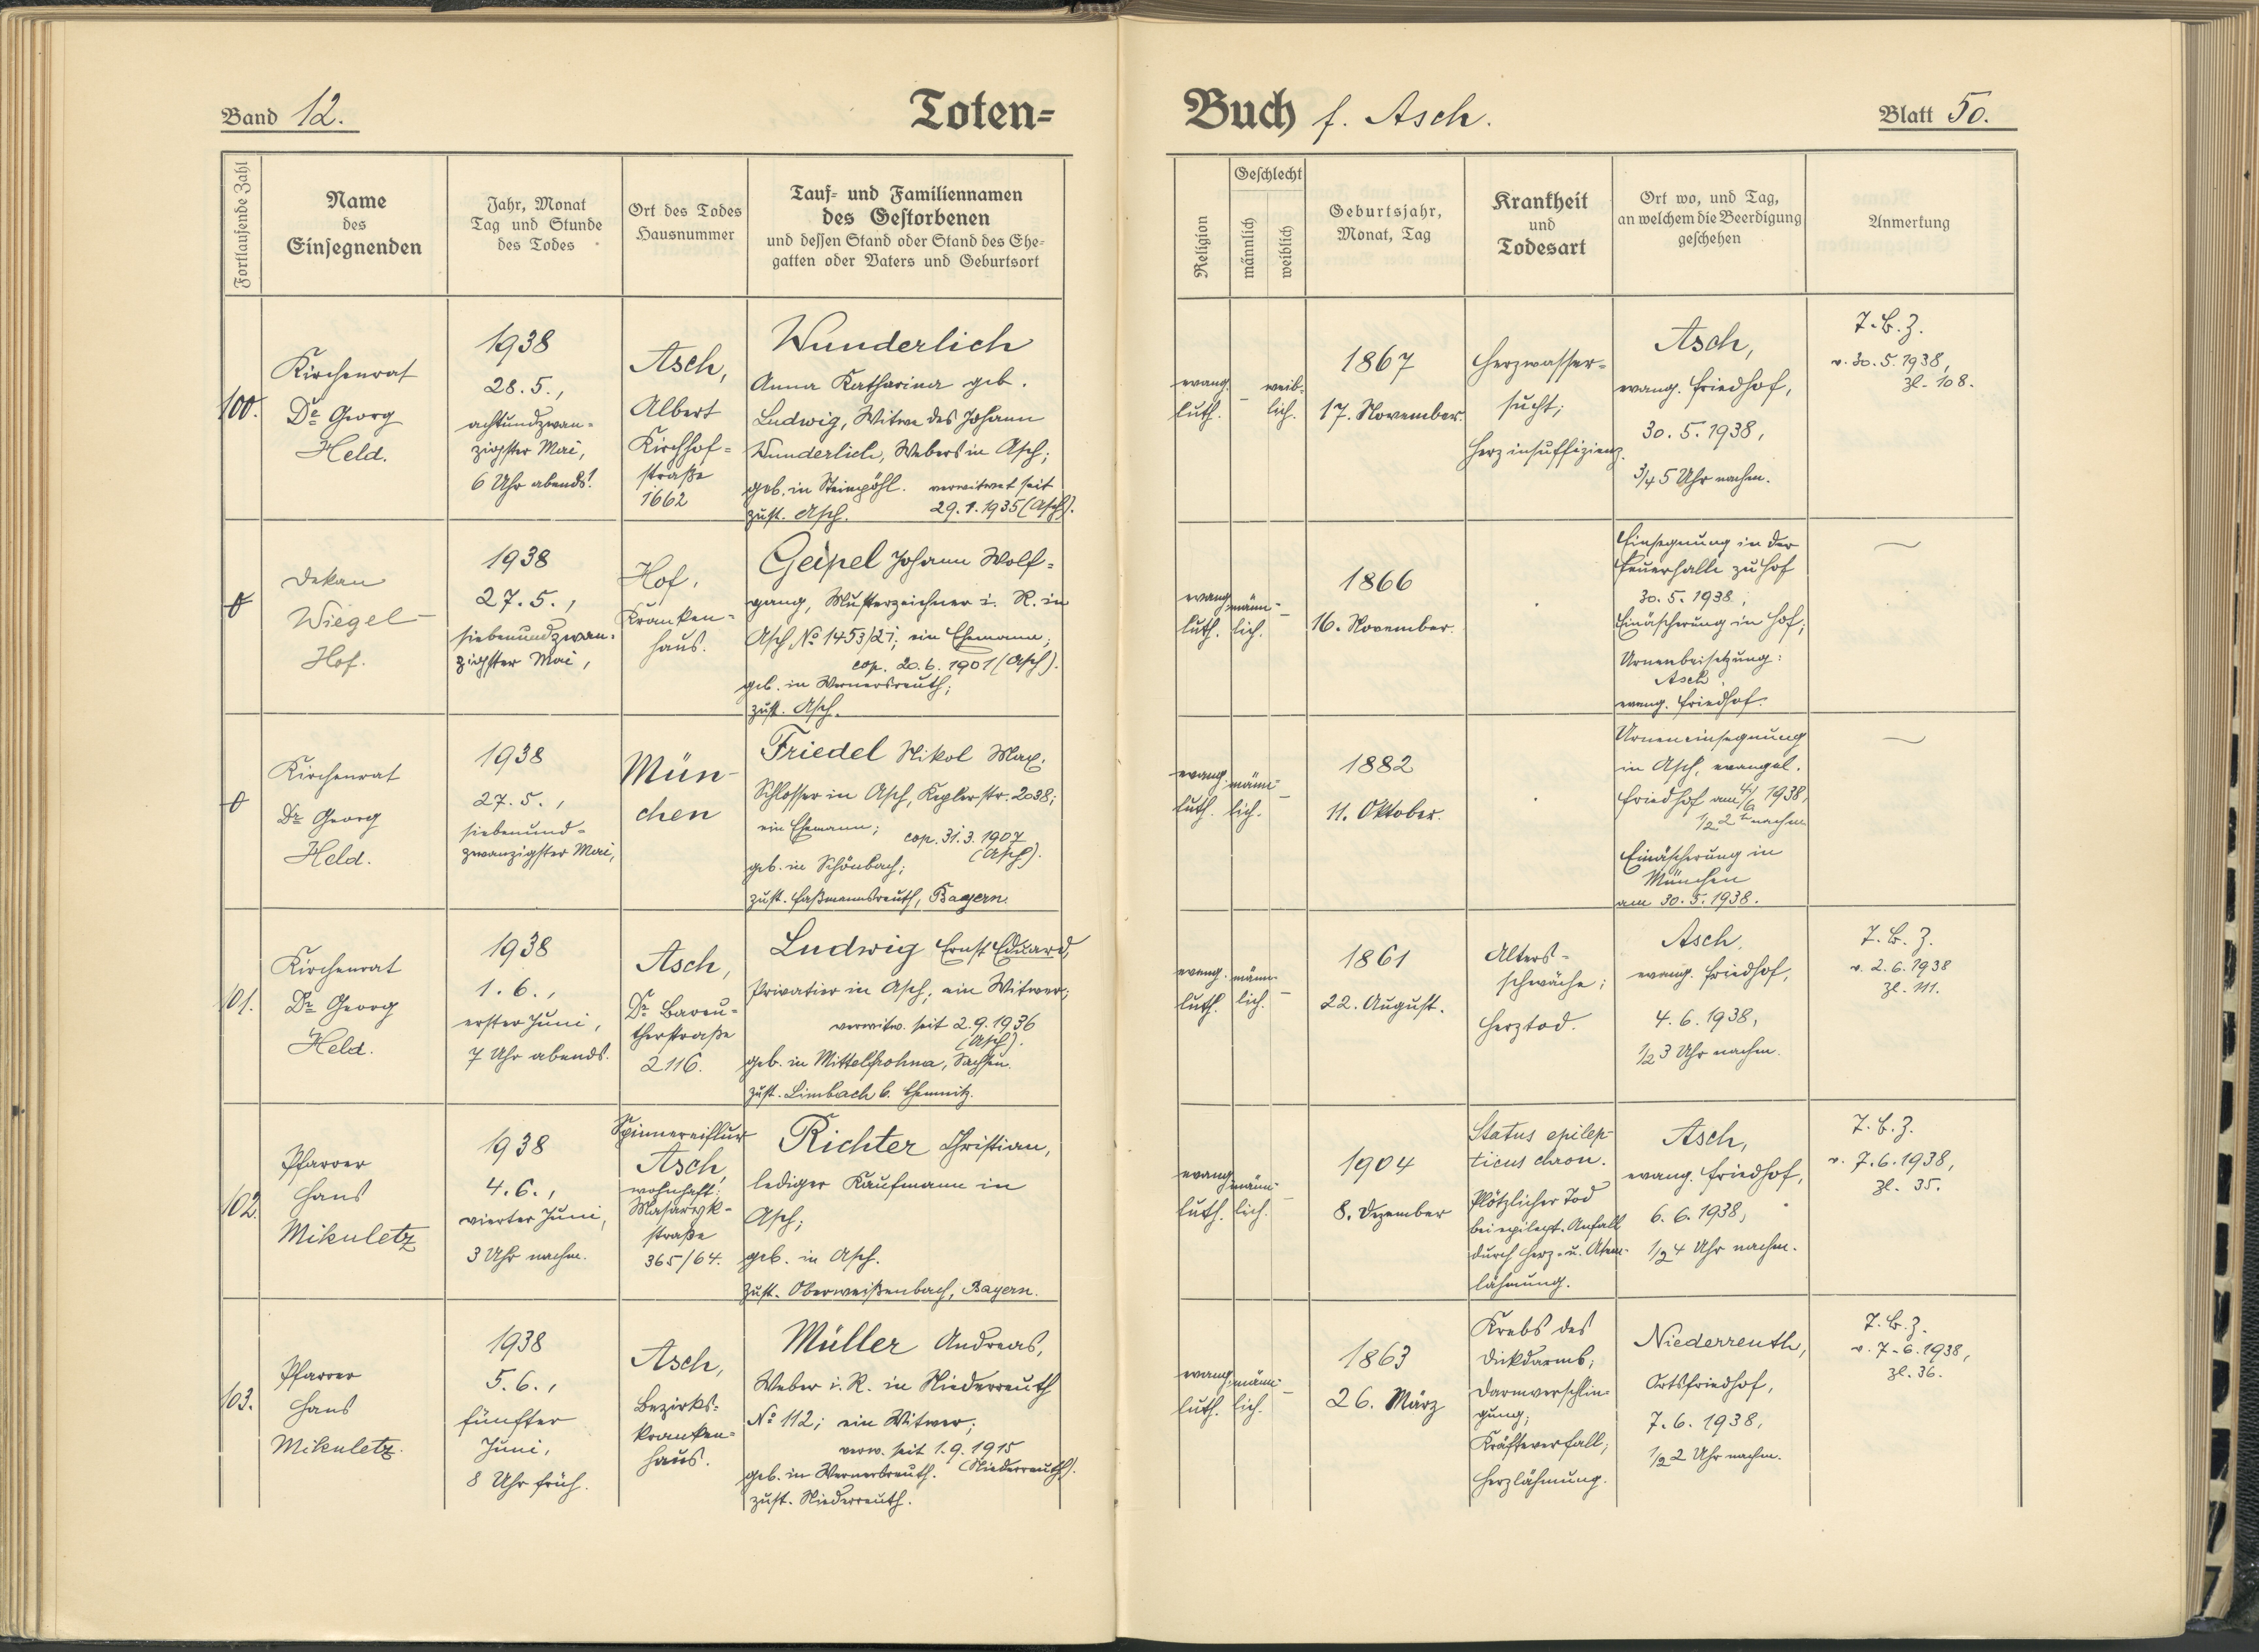 Band 12.
Toten=
Buch f. Asch.
Blatt 50.
Fortlaufende Zahl
Name
des
Einsegnenden
Jahr, Monat
Tag und Stunde
des Todes
Ort des Todes
Hausnummer
Tauf= und Familiennamen
des Gestorbenen
und dessen Stand oder Stand des Ehe=
gatten oder Vaters und Geburtsort
Religion
Geschlecht
männlich
weiblich
Geburtsjahr,
Monat, Tag
Krankheit
und
Todesart
Ort wo, und Tag,
an welchem die Beerdigung
geschehen
Anmerkung
100.
Kirchenrat
Dr Georg
Held.
1938
28.5.,
achtundzwan=
zigster Mai,
6 Uhr abends.
Asch,
Albert
Kirchhof=
straße
1662
Wunderlich
Anna Katharina geb.
Ludwig, Witwe des Johann
Wunderlich, Webers in Asch;
geb. in Steinpöhl. verwitwet seit
zust. Asch. 29.1.1935 (Asch).
evang.
luth.
-
weib=
lich.
1867
17. November.
Herzwasser=
sucht;
Herzinsuffizienz.
Asch,
evang. Friedhof,
30.5.1938,
3/4 5 Uhr nachm.
T.B.Z.
v. 30.5.1938,
Zl. 108.
0
Dekan
Wiegel
Hof.
1938
27.5.,
siebenundzwan=
zigster Mai,
Hof,
Kranken=
haus.
Geipel Johann Wolf=
gang, Musterzeichner i. R. in
Asch No 1453/21; ein Ehemann;
cop. 20.6.1901 (Asch).
geb. in Wernersreuth;
zust. Asch.
evang.
luth.
männ=
lich.
-
1866
16. November.
Einsegnung in der
Feuerhalle zu Hof
30.5.1938;
Einäscherung in Hof;
Urnenbeisetzung:
Asch
evang. Friedhof.
0
Kirchenrat
Dr Georg
Held.
1938
27.5.,
siebenund=
zwanzigster Mai,
Mün-
chen
Friedel Nikol Max.
Schlosser in Asch, Keplerstr. 2038;
ein Ehemann; cop. 31.3.1907
(Asch).
geb. in Schönbach;
zust. Faßmannsreuth, Bayern.
evang.
luth.
männ=
lich.
-
1882
11. Oktober.
Urneneinsegnung
in Asch, evangel.
Friedhof am 4/6 1938,
1/2 2 h nachm
Einäscherung in
München
am 30.5.1938.
101.
Kirchenrat
Dr Georg
Held.
1938
1.6.,
erster Juni,
7 Uhr abends.
Asch,
Dr Bareu=
therstraße
2116.
Ludwig Ernst Eduard,
Privatier in Asch; ein Witwer;
verwitw. seit 2.9.1936
(Asch).
geb. in Mittelfrohna, Sachsen.
zust. Limbach b. Chemnitz.
evang.
luth.
männ
lich.
-
1861
22. August.
Alters=
schwäche;
Herztod.
Asch,
evang. Friedhof,
4.6.1938,
1/2 3 Uhr nachm.
T.B.Z.
v. 2.6.1938
Zl. 111.
102.
Pfarrer
Hans
Mikuletz
1938
4.6.,
vierter Juni,
3 Uhr nachm.
Spinnereiflur
Asch,
wohnhaft:
Masaryk=
straße
365/64.
Richter Christian,
lediger Kaufmann in
Asch;
geb. in Asch.
zust. Oberweißenbach, Bayern.
evang.
luth.
männ=
lich.
-
1904
8. Dezember
Status epilep-
ticus chron.
Plötzlicher Tod
bei epilept. Anfall
durch Herz- u. Atem-
lähmung.
Asch,
evang. Friedhof,
6.6.1938,
1/2 4 Uhr nachm.
T.B.Z.
v. 7.6.1938,
Zl. 35.
103.
Pfarrer
Hans
Mikuletz.
1938
5.6.,
fünfter
Juni,
8 Uhr früh.
Asch,
Bezirks=
kranken=
haus.
Müller Andreas,
Weber i. R. in Niederreuth
No 112; ein Witwer;
verw. seit 1.9.1915
geb. in Wernersreuth. (Niederreuth).
zust. Niederreuth.
evang.
luth.
männ=
lich.
-
1863
26. März
Krebs des
Dickdarms;
Darmverschlin=
gung;
Kräfteverfall;
Herzlähmung.
Niederreuth,
Ortsfriedhof,
7.6.1938,
1/2 2 Uhr nachm.
T.B.Z.
v. 7.6.1938,
Zl. 36.